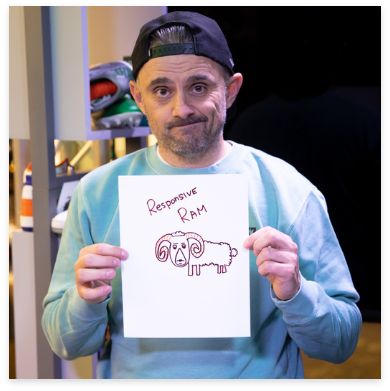 Responsive
Ram